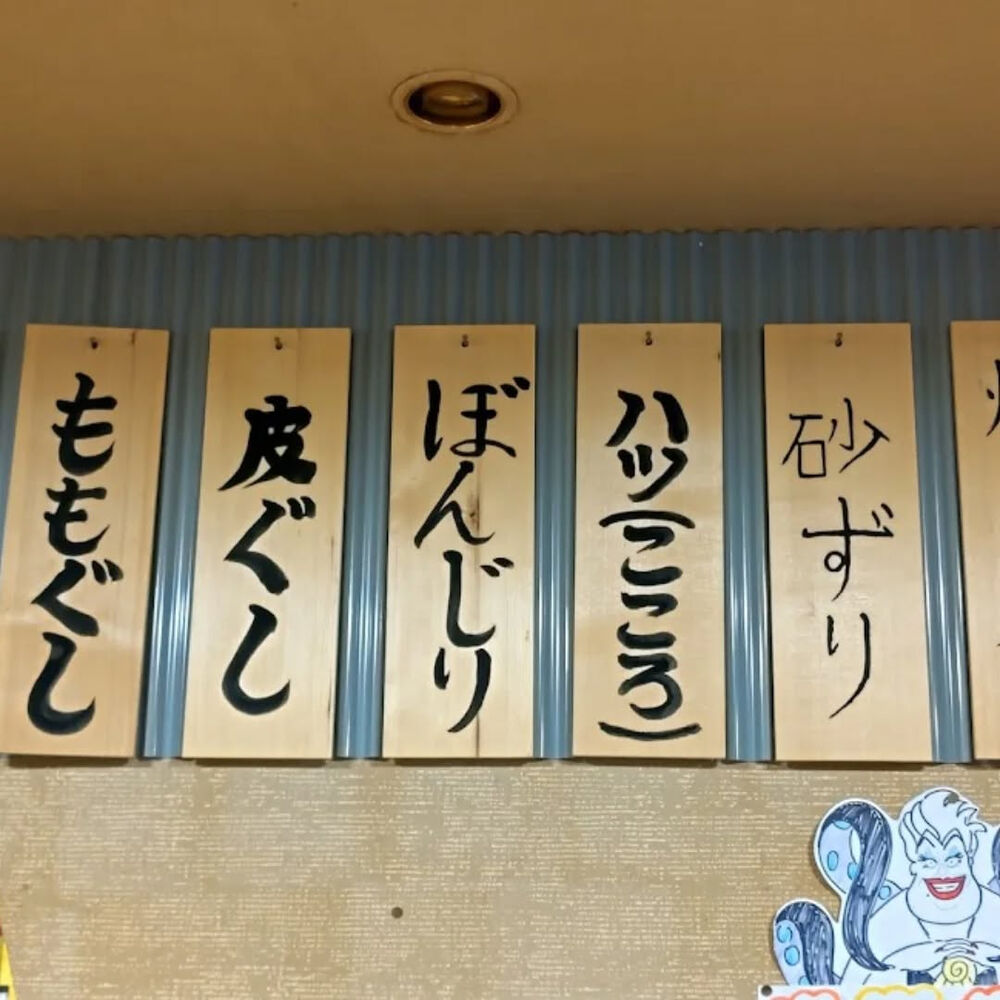 砂ずり
ハツ(こころ)
ぼんじり
皮ぐし
ももぐし